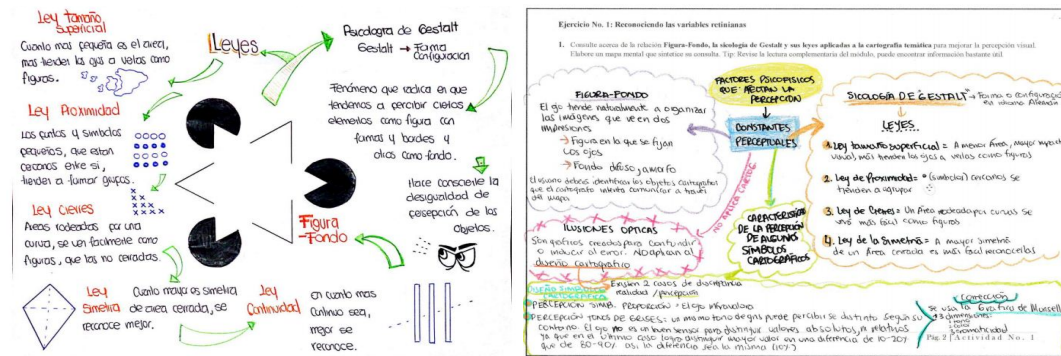 Ley tamaño
superficial
Cuanto mas pequeña es el area,
mas tienden los ojos a velas como
figuras.
Ley Proximidad
Los puntos y simbolos
pequeños, que estan
cercanos entre si,
tienden a formar grupos.
Ley Cierres
Areas rodeadas por una
curva, se ven facilmente como
figuras, que las no cerradas.
Ley
Simetria
Cuanto mayor es simetria
de area cerrada, se
reconoce mejor.
Leyes
Psicologia de Gestalt
Gestalt → Forma
configuración
Fenómeno que radica en que
tendemos a percibir ciertos
elementos como figura con
formas y bordes y
otros como fondo.
Hace consciente la
desigualdad de
persepción de los
objetos.
Figura
-Fondo
Ley
Continuidad
en cuanto mas
continuo sea,
mejor se
reconoce.
Ejercicio No. 1: Reconociendo las variables retinianas
1. Consulte acerca de la relación Figura-Fondo, la sicología de Gestalt y sus leyes aplicadas a la cartografía temática para mejorar la percepción visual.
Elabore un mapa mental que sintetice su consulta. Tip: Revise la lectura complementaria del módulo, puede encontrar información bastante útil.
FACTORES PSICOFISICOS
QUE AFECTAN LA
PERCEPCIÓN
CONSTANTES
PERCEPTUALES
FIGURA-FONDO
El ojo tiende naturalmente a organizar
las imágenes que ve en dos
impresiones
→ Figura en la que se fijan
los ojos
→ Fondo difuso, amorfo
El usuario deberá identificar los objetos cartografiados
que el cartógrafo intenta comunicar a través
del mapa
SICOLOGÍA DE GESTALT → Forma o configuración
en idioma Alemán
LEYES
1. Ley tamaño superficial = A menor Área, mayor
visual, más tienden los ojos a verlas como figuras
2. Ley de Proximidad = (simbolos) cercanos se
tienden a agrupar
3. Ley de Cierres = Un Área rodeada por curvas se
ve más fácil como figuras
4. Ley de la Simetría = A mayor Simetría
de un Área cerrada es más fácil reconocerlas
NO APLICA CARTOG
ILUSIONES OPTICAS
Son gráficos creados para confundir
o inducir al error. No aplican al
diseño cartografico
CARACTERÍSTICAS
DE LA PERCEPCIÓN
DE ALGUNOS
SÍMBOLOS
CARTOGRÁFICOS
DISEÑO SIMBOLOS
CARTOGRÁFICOS
Existen 2 casos de discrepancia
realidad / percepción
PERCEPCIÓN SIMB. PROPORCIÓN = El ojo infravalora
PERCEPCIÓN TONOS DE GRISES = un mismo tono de gris puede percibirse distinto según su
contorno. El ojo no es un buen sensor para distinguir valores absolutos, ni relativos
ya que en el último caso logra distinguir mayor valor en una diferencia de 10-20%
que de 80-90% así la diferencia sea la misma (10%)
CORRECCIÓN
Se usa la Esfera de Munsell
3 dimensiones:
1. Tono
2. Valor
3. Cromaticidad
Pág. 2 | Actividad No. 1